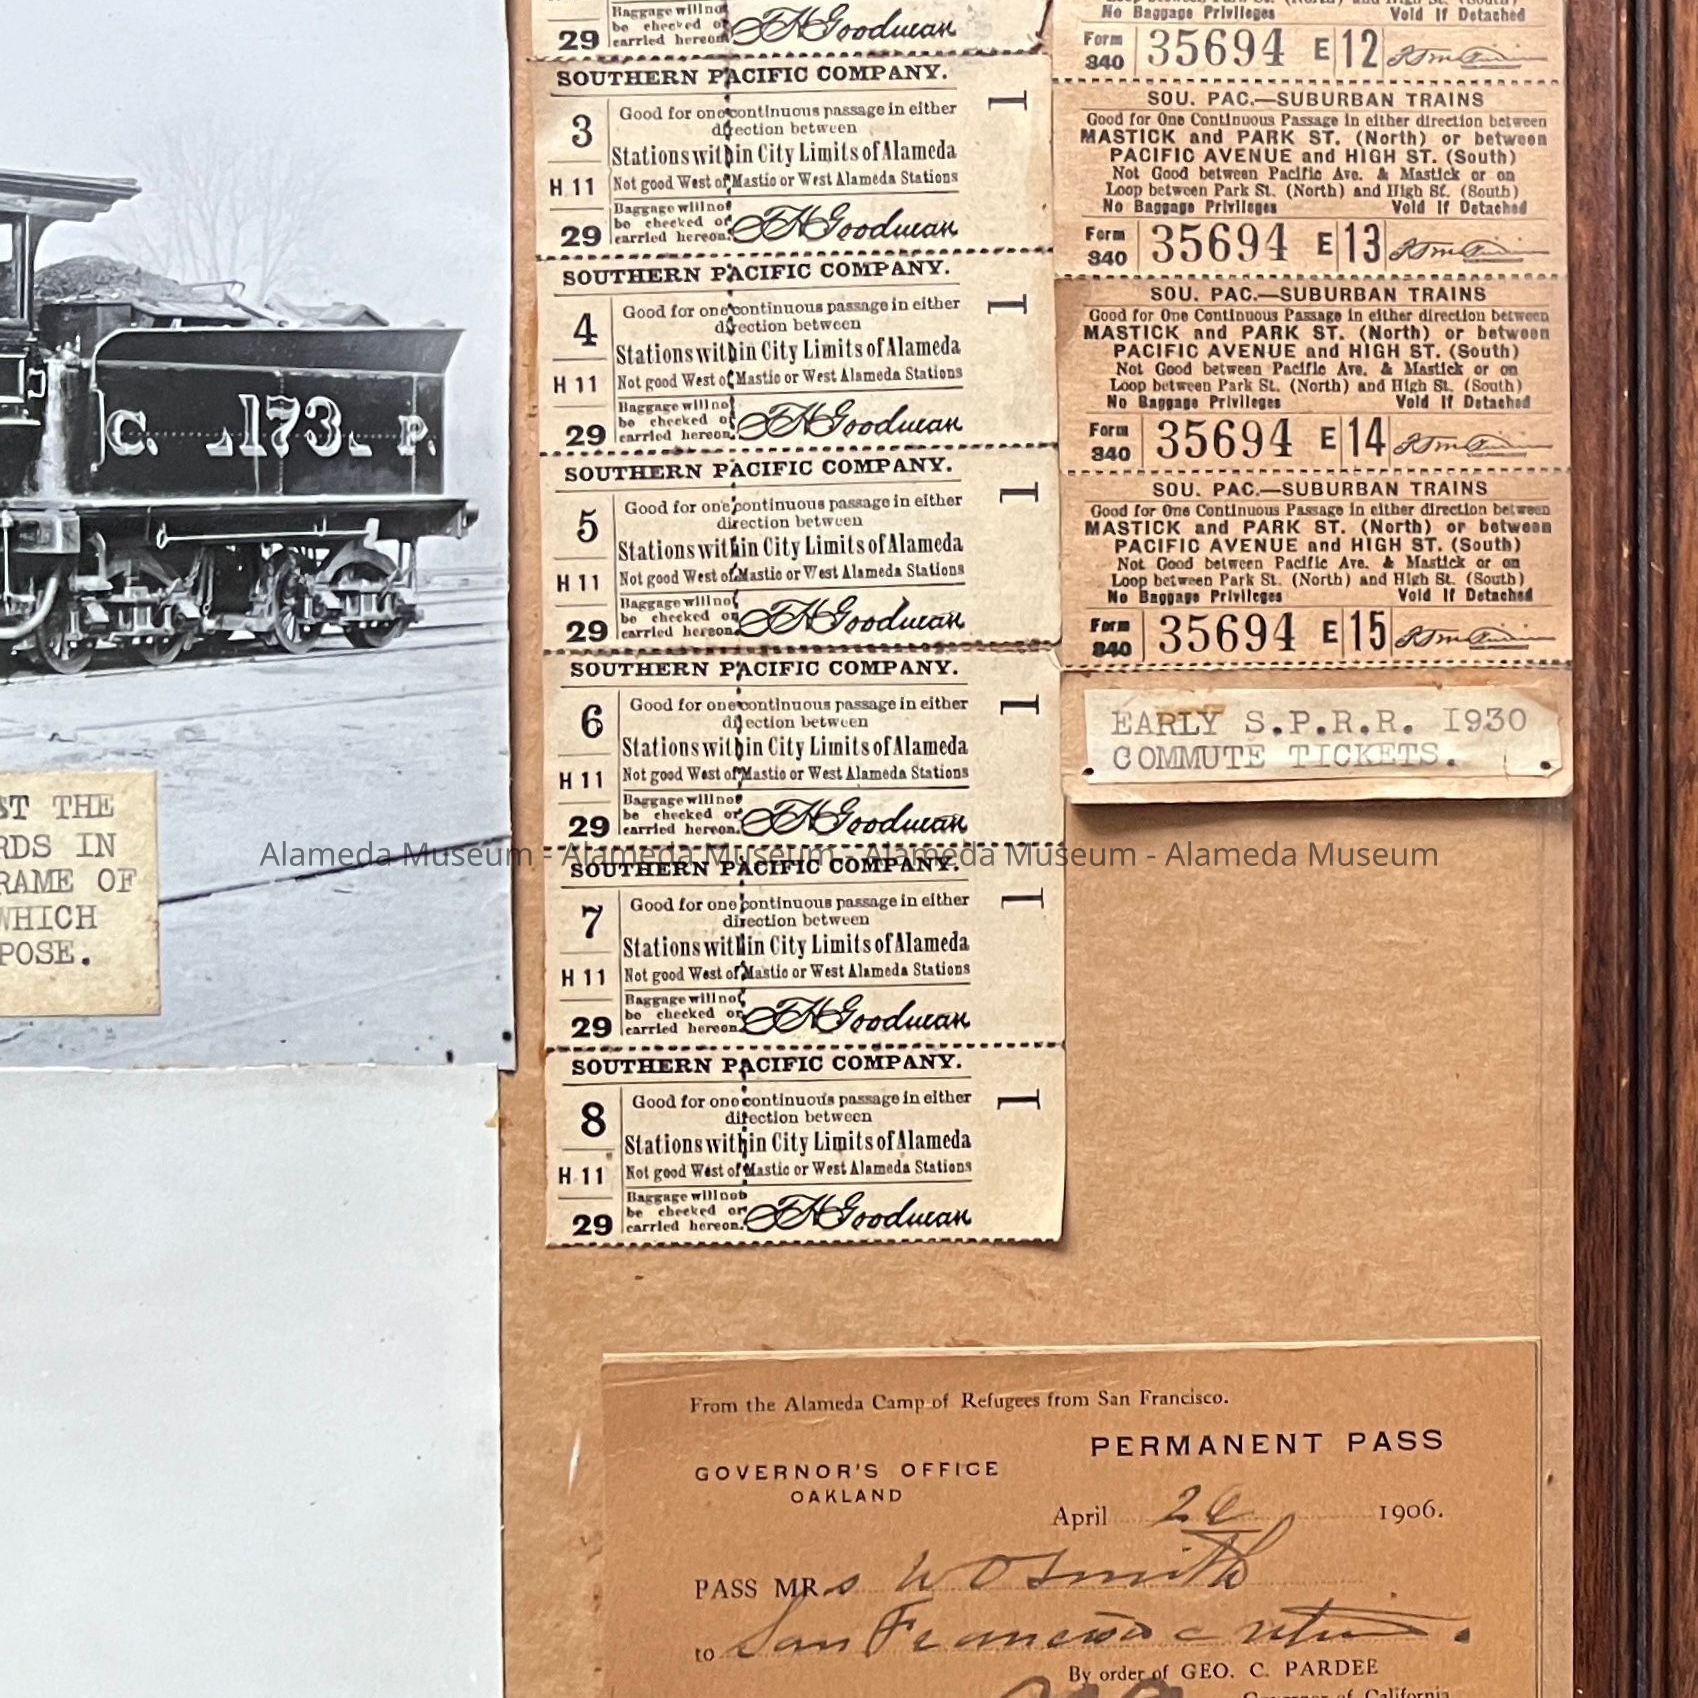 C. 173. P.
ST THE
RDS IN
RAME OF
WHICH
POSE.
Baggage will not
be checked or
carried hereon.
29
F H Goodman
SOUTHERN PACIFIC COMPANY.
3
Good for one continuous passage in either
direction between
Stations within City Limits of Alameda
H 11
Not good West of Mastic or West Alameda Stations
Baggage will not
be checked or
carried hereon.
29
F H Goodman
1
SOUTHERN PACIFIC COMPANY.
4
Good for one continuous passage in either
direction between
Stations within City Limits of Alameda
H 11
Not good West of Mastic or West Alameda Stations
Baggage will not
be checked or
carried hereon.
29
F H Goodman
1
SOUTHERN PACIFIC COMPANY.
5
Good for one continuous passage in either
direction between
Stations within City Limits of Alameda
H 11
Not good West of Mastic or West Alameda Stations
Baggage will not
be checked or
carried hereon.
29
F H Goodman
1
SOUTHERN PACIFIC COMPANY.
6
Good for one continuous passage in either
direction between
Stations within City Limits of Alameda
H 11
Not good West of Mastic or West Alameda Stations
Baggage will not
be checked or
carried hereon.
29
F H Goodman
1
SOUTHERN PACIFIC COMPANY.
7
Good for one continuous passage in either
direction between
Stations within City Limits of Alameda
H 11
Not good West of Mastic or West Alameda Stations
Baggage will not
be checked or
carried hereon.
29
F H Goodman
1
SOUTHERN PACIFIC COMPANY.
8
Good for one continuous passage in either
direction between
Stations within City Limits of Alameda
H 11
Not good West of Mastic or West Alameda Stations
Baggage will not
be checked or
carried hereon.
29
F H Goodman
1
Loop between Park St. (North) and High St. (South)
No Baggage Privileges Void If Detached
Form 840 35694 E 12
SOU. PAC.—SUBURBAN TRAINS
Good for One Continuous Passage in either direction between
MASTICK and PARK ST. (North) or between
PACIFIC AVENUE and HIGH ST. (South)
Not Good between Pacific Ave. & Mastick or on
Loop between Park St. (North) and High St. (South)
No Baggage Privileges Void If Detached
Form 840 35694 E 13
SOU. PAC.—SUBURBAN TRAINS
Good for One Continuous Passage in either direction between
MASTICK and PARK ST. (North) or between
PACIFIC AVENUE and HIGH ST. (South)
Not Good between Pacific Ave. & Mastick or on
Loop between Park St. (North) and High St. (South)
No Baggage Privileges Void If Detached
Form 840 35694 E 14
SOU. PAC.—SUBURBAN TRAINS
Good for One Continuous Passage in either direction between
MASTICK and PARK ST. (North) or between
PACIFIC AVENUE and HIGH ST. (South)
Not Good between Pacific Ave. & Mastick or on
Loop between Park St. (North) and High St. (South)
No Baggage Privileges Void If Detached
Form 840 35694 E 15
EARLY S.P.R.R. 1930
COMMUTE TICKETS.
Alameda Museum - Alameda Museum - Alameda Museum - Alameda Museum
From the Alameda Camp of Refugees from San Francisco.
PERMANENT PASS
GOVERNOR'S OFFICE
OAKLAND
April 26 1906.
PASS MRs W O Smith
to San Francisco & return.
By order of GEO. C. PARDEE
Governor of California